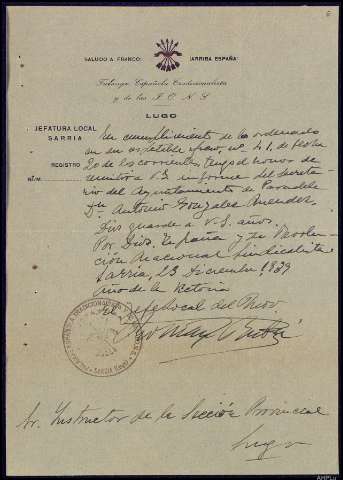 6
SALUDO A FRANCO: ¡ARRIBA ESPAÑA!
Falange Española Tradicionalista
y de las J.O.N.S.
LUGO
JEFATURA LOCAL
SARRIA
REGISTRO
NÚM.
En cumplimiento de lo ordenado
en su respetable escrito nº 41 de fecha
20 de los corrientes, tengo el honor de
remitir a V.S. informe del secreta-
rio del Ayuntamiento de Paradela
Dn Antonio Gonzalez
Dios guarde a V.S. años.
Por Dios, España y su Revolu-
ción Nacional Sindicalista
Sarria, 23 Diciembre 1939
Año de la Victoria
El Jefe Local del Mov.
FALANGE ESPAÑOLA TRADICIONALISTA Y DE LAS J.O.N.S.
SARRIA (Lugo)
Sr. Instructor de la Sección Provincial
Lugo
AHPLu